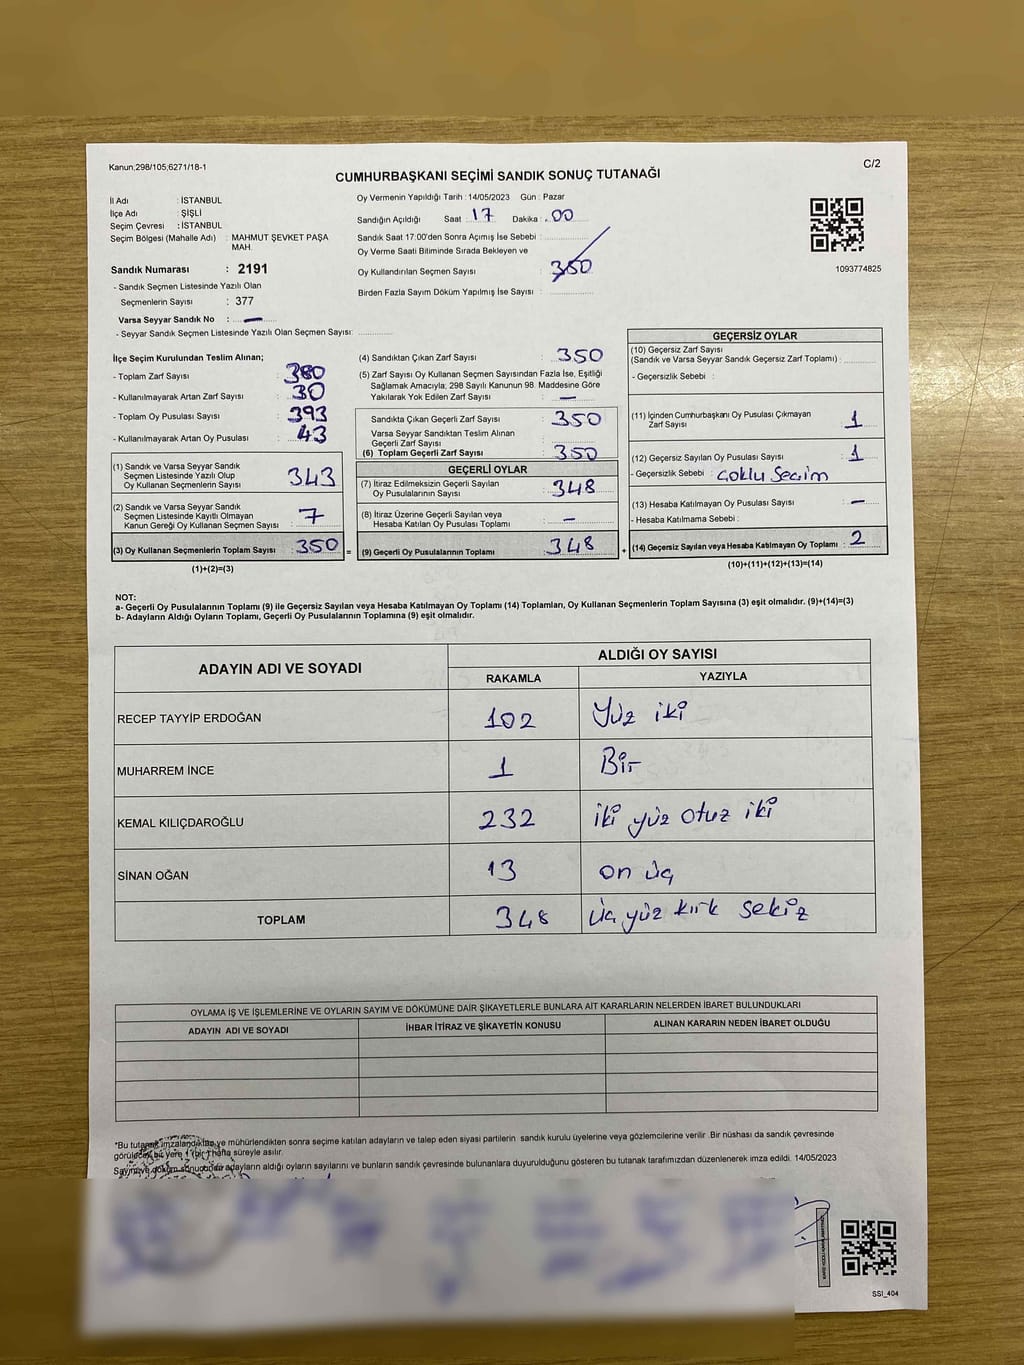 Kanun;298/105,6271/18-1
C/2
CUMHURBAŞKANI SEÇİMİ SANDIK SONUÇ TUTANAĞI
İl Adı : İSTANBUL
İlçe Adı : ŞİŞLİ
Seçim Çevresi : İSTANBUL
Seçim Bölgesi (Mahalle Adı) : MAHMUT ŞEVKET PAŞA
MAH.
Sandık Numarası : 2191
- Sandık Seçmen Listesinde Yazılı Olan
Seçmenlerin Sayısı : 377
Varsa Seyyar Sandık No : —
- Seyyar Sandık Seçmen Listesinde Yazılı Olan Seçmen Sayısı:
Oy Vermenin Yapıldığı Tarih : 14/05/2023 Gün : Pazar
Sandığın Açıldığı Saat 17 Dakika : 00
Sandık Saat 17:00'den Sonra Açımış İse Sebebi :
Oy Verme Saati Bitiminde Sırada Bekleyen ve
Oy Kullandırılan Seçmen Sayısı : 350
Birden Fazla Sayım Döküm Yapılmış İse Sayısı :
1093774825
İlçe Seçim Kurulundan Teslim Alınan;
- Toplam Zarf Sayısı : 380
- Kullanılmayarak Artan Zarf Sayısı : 30
- Toplam Oy Pusulası Sayısı : 393
- Kullanılmayarak Artan Oy Pusulası : 43
(1) Sandık ve Varsa Seyyar Sandık
Seçmen Listesinde Yazılı Olup
Oy Kullanan Seçmenlerin Sayısı : 343
(2) Sandık ve Varsa Seyyar Sandık
Seçmen Listesinde Kayıtlı Olmayan
Kanun Gereği Oy Kullanan Seçmen Sayısı : 7
(3) Oy Kullanan Seçmenlerin Toplam Sayısı : 350 =
(1)+(2)=(3)
(4) Sandıktan Çıkan Zarf Sayısı : 350
(5) Zarf Sayısı Oy Kullanan Seçmen Sayısından Fazla İse, Eşitliği
Sağlamak Amacıyla; 298 Sayılı Kanunun 98. Maddesine Göre
Yakılarak Yok Edilen Zarf Sayısı : —
Sandıkta Çıkan Geçerli Zarf Sayısı : 350
Varsa Seyyar Sandıktan Teslim Alınan
Geçerli Zarf Sayısı :
(6) Toplam Geçerli Zarf Sayısı : 350
GEÇERLİ OYLAR
(7) İtiraz Edilmeksizin Geçerli Sayılan
Oy Pusulalarının Sayısı : 348
(8) İtiraz Üzerine Geçerli Sayılan veya
Hesaba Katılan Oy Pusulası Toplamı : —
(9) Geçerli Oy Pusulalarının Toplamı : 348 +
GEÇERSİZ OYLAR
(10) Geçersiz Zarf Sayısı
(Sandık ve Varsa Seyyar Sandık Geçersiz Zarf Toplamı) :
- Geçersizlik Sebebi :
(11) İçinden Cumhurbaşkanı Oy Pusulası Çıkmayan
Zarf Sayısı : 1
(12) Geçersiz Sayılan Oy Pusulası Sayısı : 1
- Geçersizlik Sebebi : Çoklu Seçim
(13) Hesaba Katılmayan Oy Pusulası Sayısı : —
- Hesaba Katılmama Sebebi :
(14) Geçersiz Sayılan veya Hesaba Katılmayan Oy Toplamı : 2
(10)+(11)+(12)+(13)=(14)
NOT:
a- Geçerli Oy Pusulalarının Toplamı (9) ile Geçersiz Sayılan veya Hesaba Katılmayan Oy Toplamı (14) Toplamları, Oy Kullanan Seçmenlerin Toplam Sayısına (3) eşit olmalıdır. (9)+(14)=(3)
b- Adayların Aldığı Oyların Toplamı, Geçerli Oy Pusulalarının Toplamına (9) eşit olmalıdır.
ADAYIN ADI VE SOYADI
ALDIĞI OY SAYISI
RAKAMLA YAZIYLA
RECEP TAYYİP ERDOĞAN 102 Yüz iki
MUHARREM İNCE 1 Bir
KEMAL KILIÇDAROĞLU 232 iki yüz otuz iki
SİNAN OĞAN 13 on üç
TOPLAM 348 üç yüz kırk sekiz
OYLAMA İŞ VE İŞLEMLERİNE VE OYLARIN SAYIM VE DÖKÜMÜNE DAİR ŞİKAYETLERLE BUNLARA AİT KARARLARIN NELERDEN İBARET BULUNDUKLARI
ADAYIN ADI VE SOYADI İHBAR İTİRAZ VE ŞİKAYETİN KONUSU ALINAN KARARIN NEDEN İBARET OLDUĞU
*Bu tutanak imzalandıktan ve mühürlendikten sonra seçime katılan adayların ve talep eden siyasi partilerin sandık kurulu üyelerine veya gözlemcilerine verilir .Bir nüshası da sandık çevresinde
görülecek bir yere 1 (bir) hafta süreyle asılır.
Sayım ve döküm sonucunda adayların aldığı oyların sayılarını ve bunların sandık çevresinde bulunanlara duyurulduğunu gösteren bu tutanak tarafımızdan düzenlenerek imza edildi. 14/05/2023
SSI_404